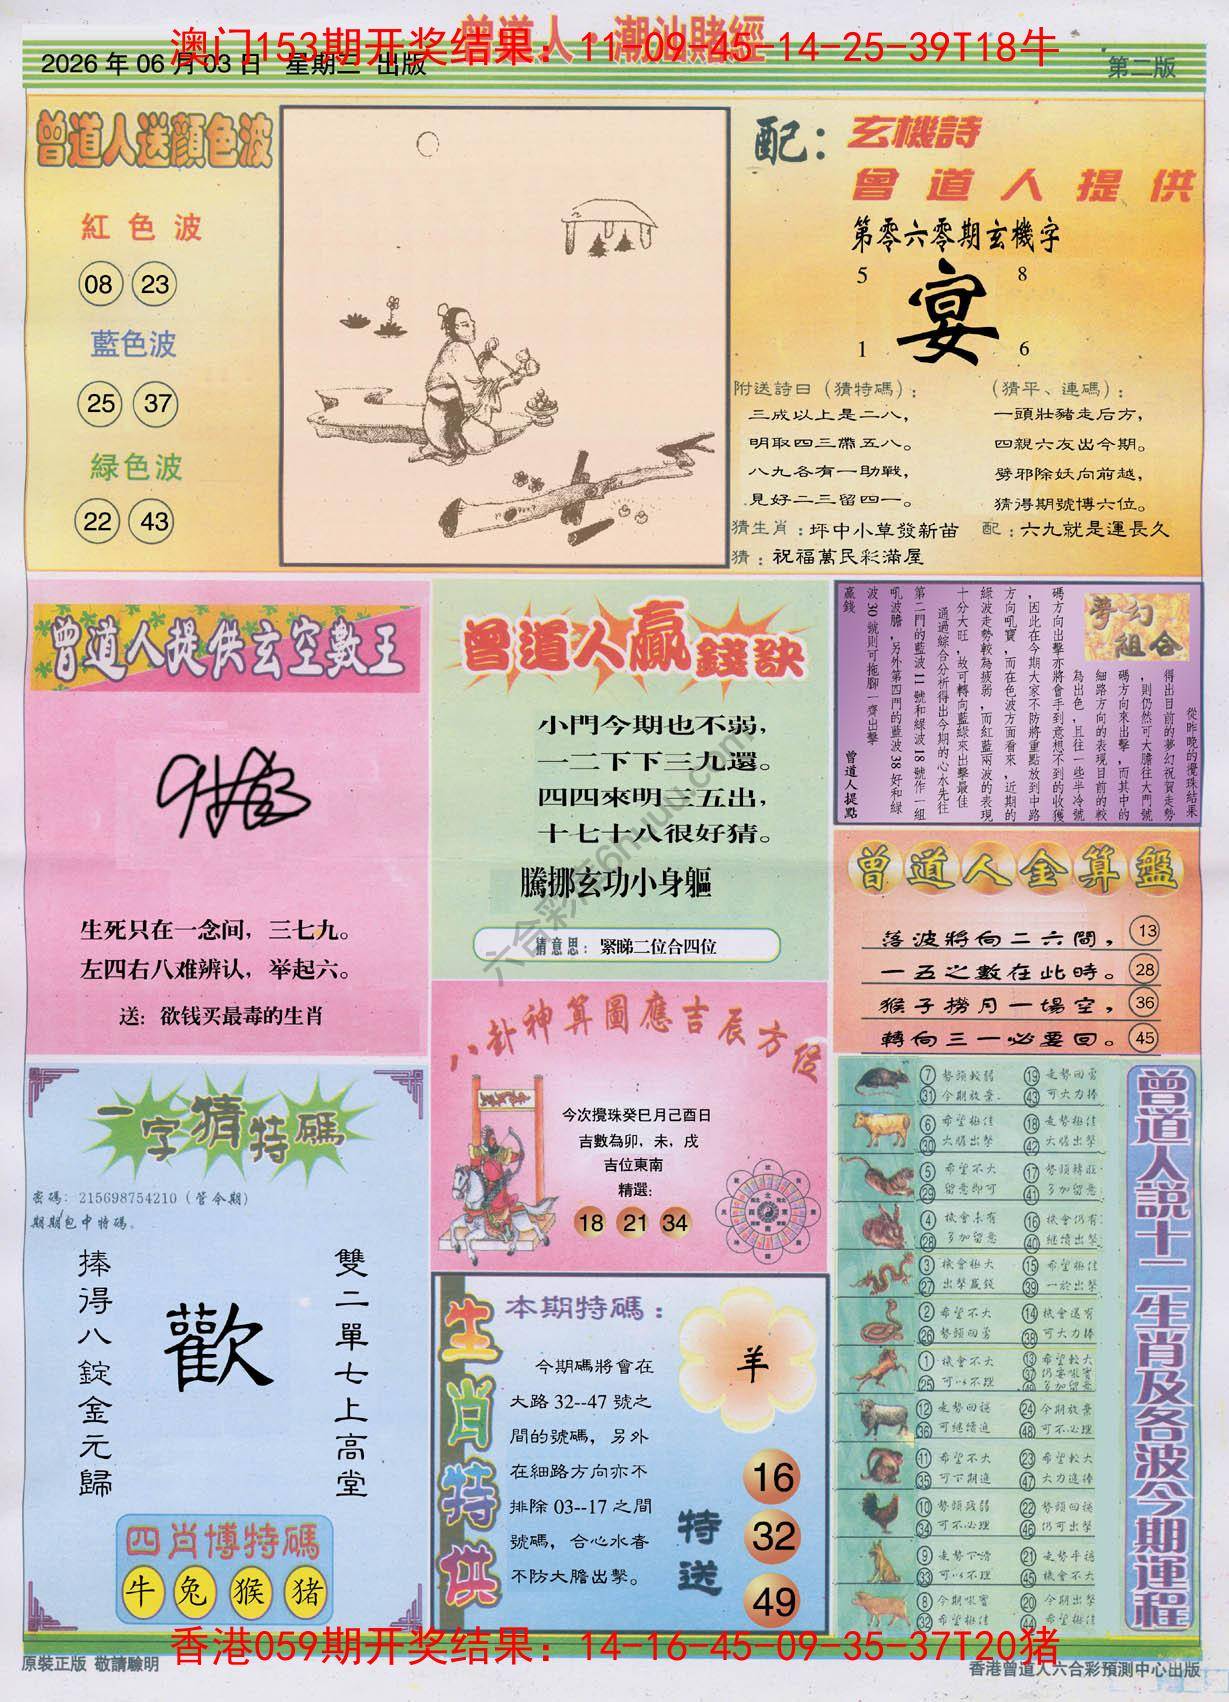 曾道人·潮汕賭經
澳门153期开奖结果：11-09-45-14-25-39T18牛
2026 年 06 月 03 日 星期三 出版
第二版
曾道人送顏色波
紅色波
08 23
藍色波
25 37
緑色波
22 43
配：
玄機詩
曾道人提供
第零六零期玄機字
5 8
宴
1 6
附送詩曰（猜特碼）：
三成以上是二八，
明取四三帶五八。
八九各有一助戰，
見好二三留四一。
（猜平、連碼）：
一頭壯豬走后方，
四親六友出今期。
劈邪除妖向前越，
猜得期號博六位。
猜生肖：坪中小草發新苗
配：六九就是運長久
猜：祝福萬民彩滿屋
曾道人提供玄空數王
生死只在一念间，三七九。
左四右八难辨认，举起六。
送：欲钱买最毒的生肖
曾道人贏錢訣
小門今期也不弱，
一二下下三九還。
四四來明二五出，
十七十八很好猜。
騰挪玄功小身軀
猜意思：緊睇二位合四位
夢幻組合
從昨晚的攪珠結果
得出目前的夢幻祝賀走勢
，則仍然可大膽往大門號
碼方向來出擊，而其中的
細路方向的表現目前的較
為出色，且往一些半冷號
碼方向出擊亦將會手到意想不到的收獲
，因此在今期大家不防將重點放到中路
方向吼寶，而在色波方面看來，近期的
綠波走勢較為疲弱，而紅藍兩波的表現
十分大旺，故可轉向藍綠來出擊最佳
通過綜合分析得出今期的心水先往
第二門的藍波11號和綠波18號作一組
吼波膽，另外第四門的藍波38好和綠
波30號則可拖腳一齊出擊
贏錢
曾道人提點
曾道人金算盤
落波將向二六問， 13
一五之數在此時。 28
猴子撈月一場空， 36
轉向三一必要回。 45
八卦神算圖應吉辰方位
今次攪珠癸巳月己酉日
吉數為卯，未，戌
吉位東南
精選：
18 21 34
一字猜特碼
密碼：215698754210（管今期）
期期包中特碼。
雙二單七上高堂
歡
捧得八錠金元歸
四肖博特碼
牛 兔 猴 猪
生肖特供
本期特碼：
今期碼將會在
大路 32--47 號之
間的號碼，另外
在細路方向亦不
排除 03--17 之間
號碼，合心水者
不防大膽出擊。
羊
特送
16
32
49
曾道人説十二生肖及各波今期運程
7 勢頭較弱 19 走勢回勇
31 今期放棄 43 可大力捧
6 希望極佳 18 走勢極佳
30 大膽出擊 42 大膽出擊
5 希望不大 17 勢頭轉旺
29 留意即可 41 多加留意
4 機會未有 16 機會仍有
28 多加留意 40 繼續出擊
3 機會極大 15 希望極佳
27 出擊贏錢 39 一於出擊
2 希望不大 14 機會還有
26 勢頭回勇 38 可大力捧
1 機會不大 13 希望較大
25 可以不理 37
12 走勢回穩 24 今期放棄
36 可繼續追 48 可不必理
11 希望不大 23 希望較大
35 可下期追 47 大力追捧
10 勢頭疲弱 22 勢頭回穩
34 可不必理 46 仍可出擊
9 走勢下滑 21 走勢平穩
33 可以不理 45 機會不大
8 今期吼寶 20 今期出擊
32 希望極佳 44 希望極佳
香港059期开奖结果：14-16-45-09-35-37T20猪
原裝正版 敬請驗明
香港曾道人六合彩預測中心出版